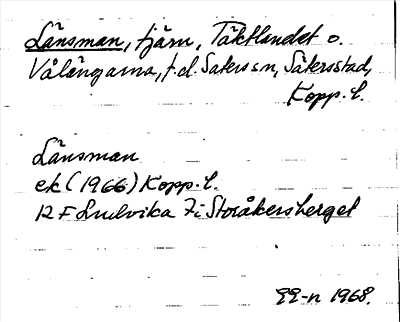 Länsman, tjärn, Täktlandet o.
Vålängarna, f.d. Säters sn, Säters stad,
Kopp. l.
Länsman
ek (1966) Kopp. l.
12 F Ludvika 7i Storåkersberget
1968.